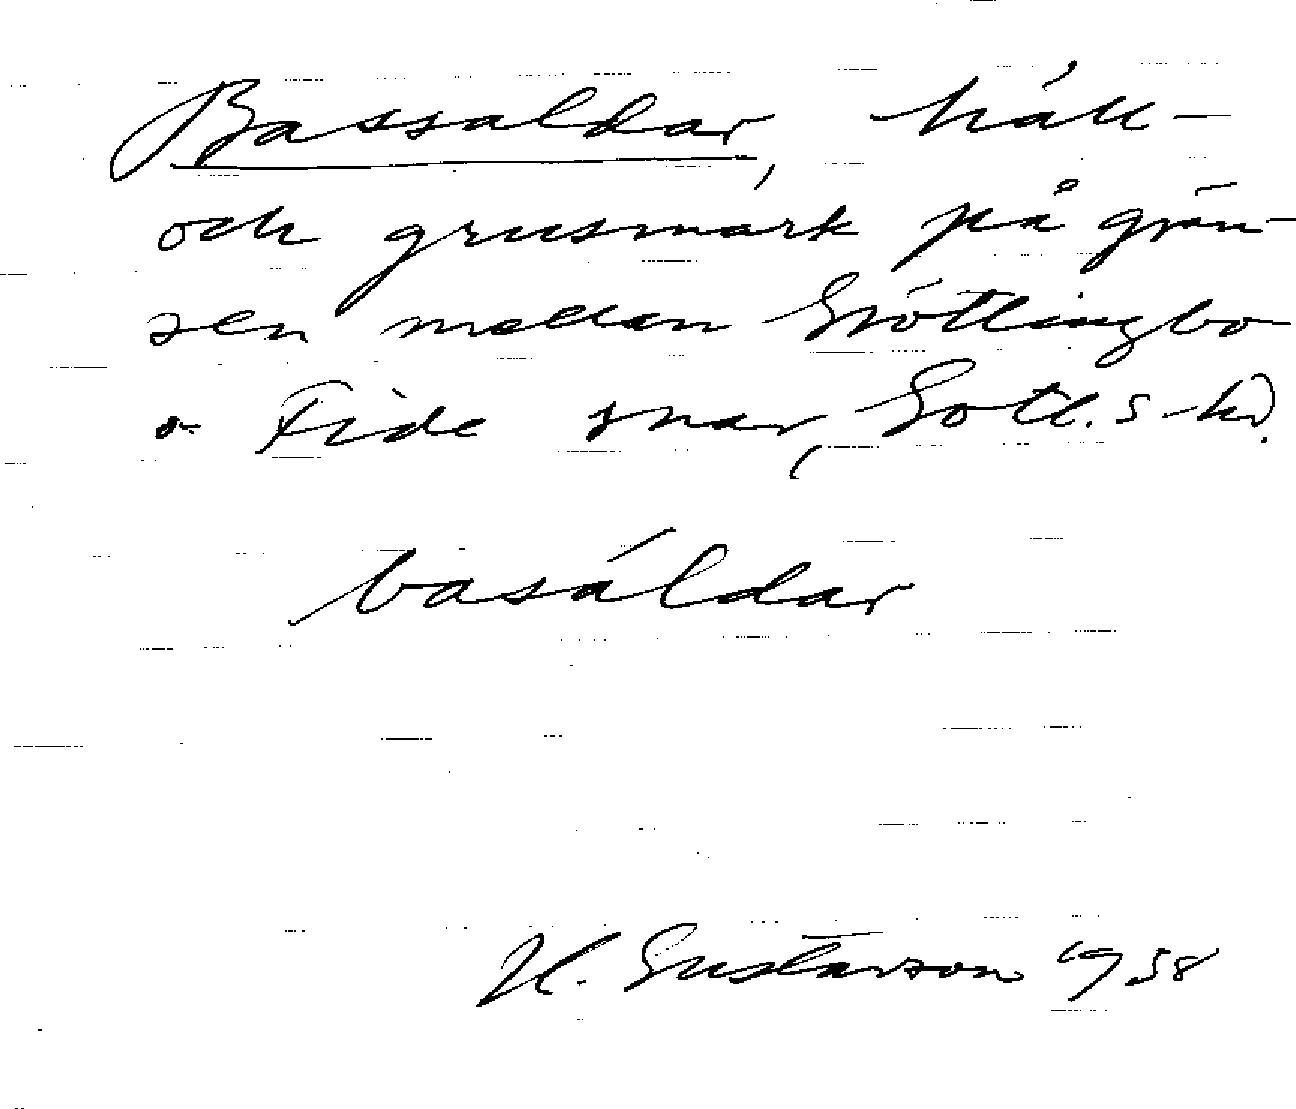 Bassaldar, häll-
och grusmark på grän-
sen mellan Gröttlingbo
o Fide snar, Gotl.s hd.
basáldar
H. Gustavson 1958